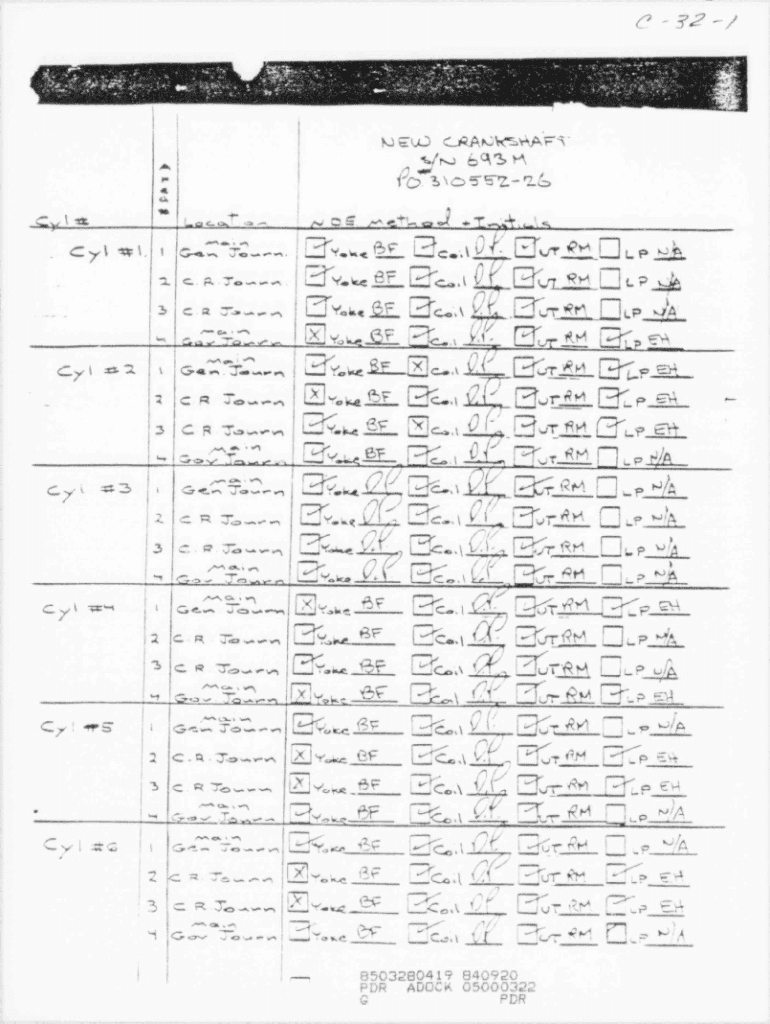 C-32-1
NEW CRANKSHAFT
S/N 693M
PO# 310552-26
Cyl # Location NDE method + Initials
Cyl #1 1 main Gen Journ. ✓ Yoke BF ✓ Coil D.P. ✓ UT RM ☐ LP N/A
2 C.R. Journ ✓ Yoke BF ✓ Coil D.P. ✓ UT RM ☐ LP N/A
3 C.R. Journ ✓ Yoke BF ✓ Coil D.P. ✓ UT RM ☐ LP N/A
4 main Gov Journ X Yoke BF ✓ Coil D.P. ✓ UT RM ✓ LP EH
Cyl #2 1 main Gen Journ ✓ Yoke BF X Coil D.P. ✓ UT RM ✓ LP EH
2 C R Journ X Yoke BF ✓ Coil D.P. ✓ UT RM ✓ LP EH
3 C R Journ ✓ Yoke BF X Coil D.P. ✓ UT RM ✓ LP EH
4 main Gov Journ ✓ Yoke BF ✓ Coil D.P. ✓ UT RM ☐ LP N/A
Cyl #3 1 main Gen Journ ✓ Yoke D.P. ✓ Coil D.P. ✓ UT RM ☐ LP N/A
2 C R Journ ✓ Yoke D.P. ✓ Coil D.P. ✓ UT RM ☐ LP N/A
3 C.R. Journ ✓ Yoke D.P. ✓ Coil D.P. ✓ UT RM ☐ LP N/A
4 main Gov Journ ✓ Yoke D.P. ✓ Coil D.P. ✓ UT RM ☐ LP N/A
Cyl #4 1 main Gen Journ X Yoke BF ✓ Coil D.P. ✓ UT RM ✓ LP EH
2 C.R. Journ ✓ Yoke BF ✓ Coil D.P. ✓ UT RM ☐ LP N/A
3 C R Journ ✓ Yoke BF ✓ Coil D.P. ✓ UT RM ☐ LP N/A
4 main Gov Journ X Yoke BF ✓ Coil D.P. ✓ UT RM ✓ LP EH
Cyl #5 1 main Gen Journ ✓ Yoke BF ✓ Coil D.P. ✓ UT RM ☐ LP N/A
2 C.R. Journ X Yoke BF ✓ Coil D.P. ✓ UT RM ✓ LP EH
3 C R Journ X Yoke BF ✓ Coil D.P. ✓ UT RM ✓ LP EH
4 main Gov Journ ✓ Yoke BF ✓ Coil D.P. ✓ UT RM ☐ LP N/A
Cyl #6 1 main Gen Journ ✓ Yoke BF ✓ Coil D.P. ✓ UT RM ☐ LP N/A
2 C R Journ X Yoke BF ✓ Coil D.P. ✓ UT RM ✓ LP EH
3 C R Journ X Yoke BF ✓ Coil D.P. ✓ UT RM ✓ LP EH
4 main Gov Journ ✓ Yoke BF ✓ Coil D.P. ✓ UT RM ☐ LP N/A
8503280419 840920
PDR ADOCK 05000322
G PDR